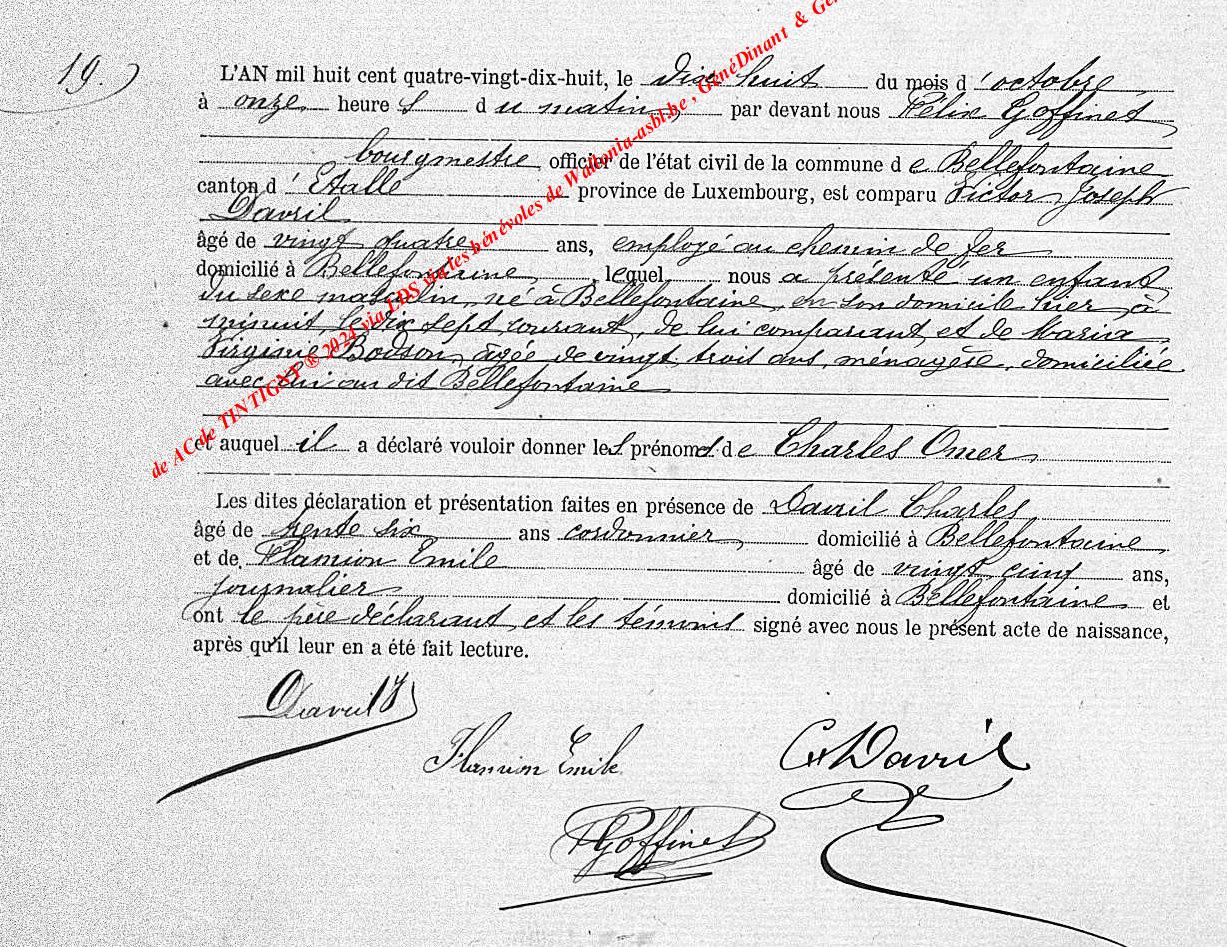 19.
L'AN mil huit cent quatre-vingt-dix-huit, le dix huit du mois d'octobre
à onze heures du matin, par devant nous Félix Goffinet
bourgmestre officier de l'état civil de la commune de Bellefontaine
canton d'Etalle province de Luxembourg, est comparu Victor Joseph
Davril
âgé de vingt quatre ans, employé au chemin de fer
domicilié à Bellefontaine, lequel nous a présenté un enfant
du sexe masculin, né à Bellefontaine, en son domicile hier, à
minuit, le dix sept courant, de lui comparant et de Maria
Virginie Bodson, âgée de vingt trois ans, ménagère, domiciliée
avec lui au dit Bellefontaine
et auquel il a déclaré vouloir donner les prénoms de Charles Omer
Les dites déclaration et présentation faites en présence de Davril Charles,
âgé de trente six ans cordonnier, domicilié à Bellefontaine
et de Flamion Emile âgé de vingt cinq ans,
journalier domicilié à Bellefontaine et
ont le père déclarant et les témoins signé avec nous le présent acte de naissance,
après qu'il leur en a été fait lecture.
Davril
Flamion Emile
Davril
Goffinet
de AC de TINTIGNY ® 2024 via LDS via les bénévoles de Wallonia-asbl.be, GenéDinant &